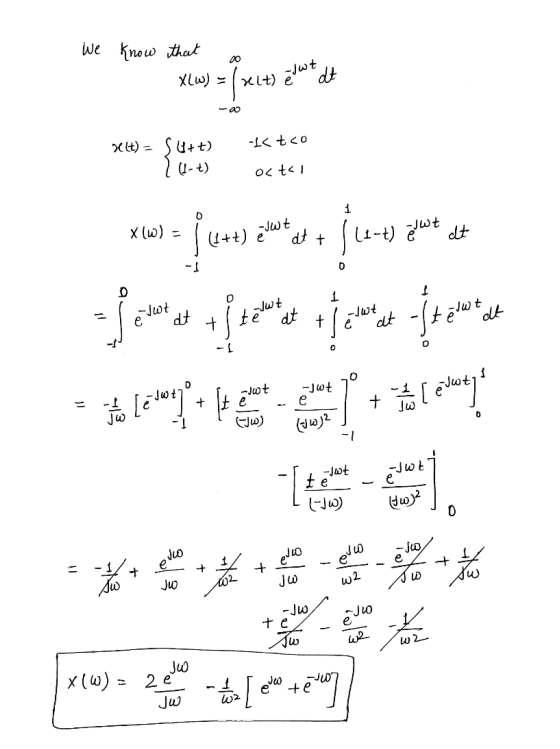 We know that
X(ω) = ∫_{-∞}^{∞} x(t) e^{-Jωt} dt
x(t) = { (1+t)   -1< t <0
(1-t)   0< t< 1
X(ω) = ∫_{-1}^{0} (1+t) e^{-Jωt} dt + ∫_{0}^{1} (1-t) e^{-Jωt} dt
= ∫_{-1}^{0} e^{-Jωt} dt + ∫_{-1}^{0} t e^{-Jωt} dt + ∫_{0}^{1} e^{-Jωt} dt - ∫_{0}^{1} t e^{-Jωt} dt
= -1/Jω [e^{-Jωt}]_{-1}^{0} + [t e^{-Jωt}/(-Jω) - e^{-Jωt}/(-Jω)^2]_{-1}^{0} + -1/Jω [e^{-Jωt}]_{0}^{1}
- [t e^{-Jωt}/(-Jω) - e^{-Jωt}/(Jω)^2]_{0}^{1}
= -1/Jω + e^{Jω}/Jω + 1/ω2 + e^{Jω}/Jω - e^{Jω}/ω2 - e^{-Jω}/Jω + 1/Jω
+ e^{-Jω}/Jω - e^{-Jω}/ω2 - 1/ω2
X(ω) = 2e^{Jω}/Jω - 1/ω2 [e^{Jω} + e^{-Jω}]